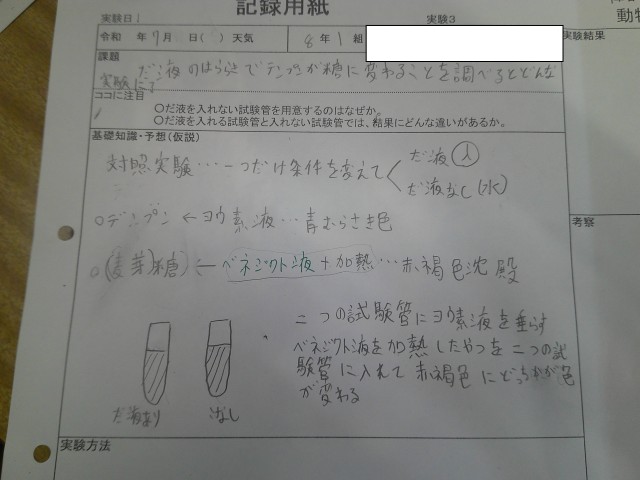 記録用紙
実験日
実験3
動物
令和 年 7月 日( ) 天気
8年1組
実験結果
課題
だ液のはらきでデンプンが糖に変わることを調べるとどんな
実験に?
ココに注目
○だ液を入れない試験管を用意するのはなぜか。
○だ液を入れる試験管と入れない試験管では、結果にどんな違いがあるか。
基礎知識・予想(仮説)
対照実験…一つだけ条件を変えて
だ液入
だ液なし(水)
○デンプン←ヨウ素液…青むらさき色
○(麦芽)糖←ベネジクト液+加熱…赤褐色沈殿
二つの試験管にヨウ素液を垂らす
ベネジクト液を加熱したやつを二つの試
験管に入れて赤褐色にどっちかが色
が変わる
だ液あり
なし
実験方法
考察